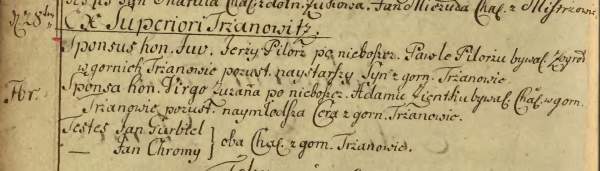 Chał. z doln. Żukowa. Jan Mieżuda Chał. z Mistrzowic
Ex Superiori Tržanowitz.
D. 28 Sponsus hon. Juv. Jerży Pilorż po niebożcz. Pawle Pilorżu bywał.
w gornich Tržanowie pozust. naystarżży Syn z gorn. Tržanowic.
Fbr. Sponsa hon. Virgo Zużana po niebożcz. Adamie Zientku bywał. Chał. w gorn.
Tržanowie pozust. naymlodsża Cera z gorn. Tržanowic.
Testes Jan Gurbiel
— Jan Chromy } oba Chał. z gorn. Tržanowic.